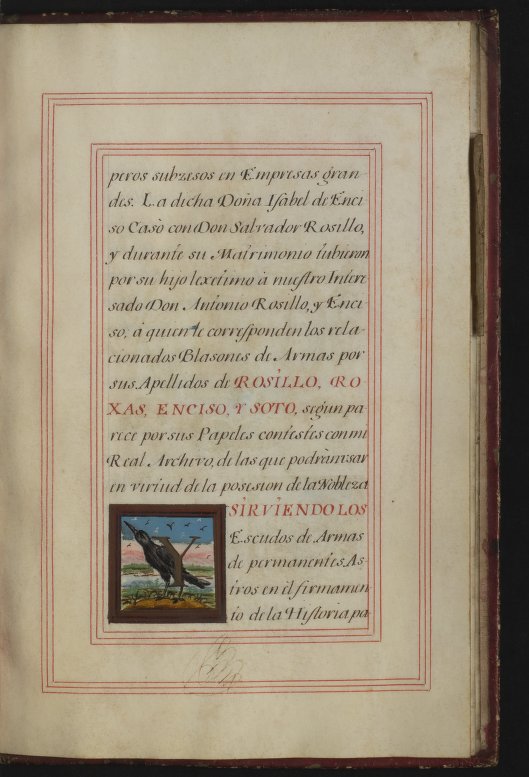 peros subzesos en Empresas gran-
des. La dicha Doña Isabel de Enci
so Casò con Don Salvador Rosillo,
y durante su Matrimonio tubieron
por su hijo lexitimo à nuestro Intere
sado Don Antonio Rosillo, y Enci-
so, à quien le corresponden los rela-
cionados Blasones de Armas por
sus Apellidos de ROSILLO, RO-
XAS, ENCISO, Y SOTO, segun pa-
rece por sus Papeles contestes con mi
Real Archivo, de las que podrà usar
en virtud de la posesion de la Nobleza
Y SIRVIENDO LOS
Escudos de Armas
de permanentes As-
tros en el firmamen
to de la Historia pa